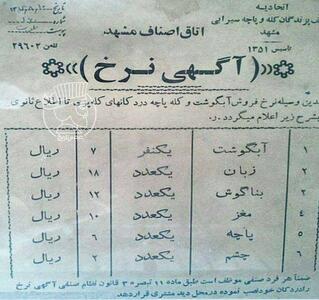 اتحادیه
پزندگان کله و پاچه سیرابی
مشهد
تاسیس ۱۳۵۱
اتاق اصناف مشهد
تلفن ۲۹۶۰۲
(آگهی نرخ)
بدین وسیله نرخ فروش آبگوشت و کله پاچه در دکانهای کله پزی تا اطلاع ثانوی
بشرح زیر اعلام میگردد.
۱ آبگوشت یکنفر ۷ ریال
۲ زبان یکعدد ۱۸ ریال
۳ بناگوش یکعدد ۱۲ ریال
۴ مغز یکعدد ۱۰ ریال
۵ پاچه یکعدد ۶ ریال
۶ چشم یکعدد ۲ ریال
ضمناً هر فرد صنفی موظف است طبق ماده ۱۱ تبصره ۳ قانون نظام صنفی آگهی نرخ
را در دکان خود نصب نموده در محل دید مشتری قرار دهد